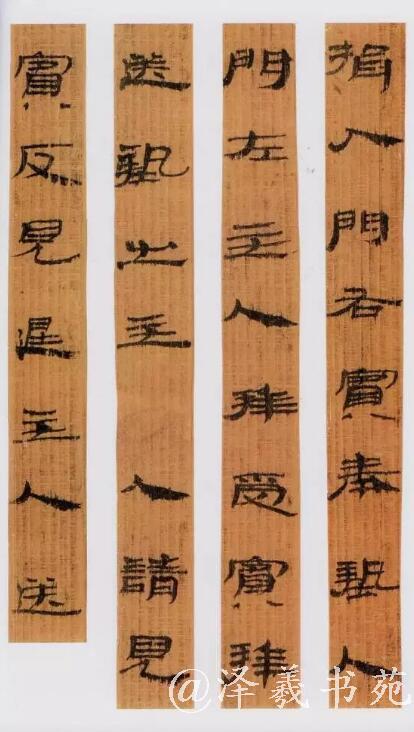 揖入門右賓奉摯入
門左主人拜受賓拜
送摯出主人請見
賓反見退主人送
@泽羲书苑